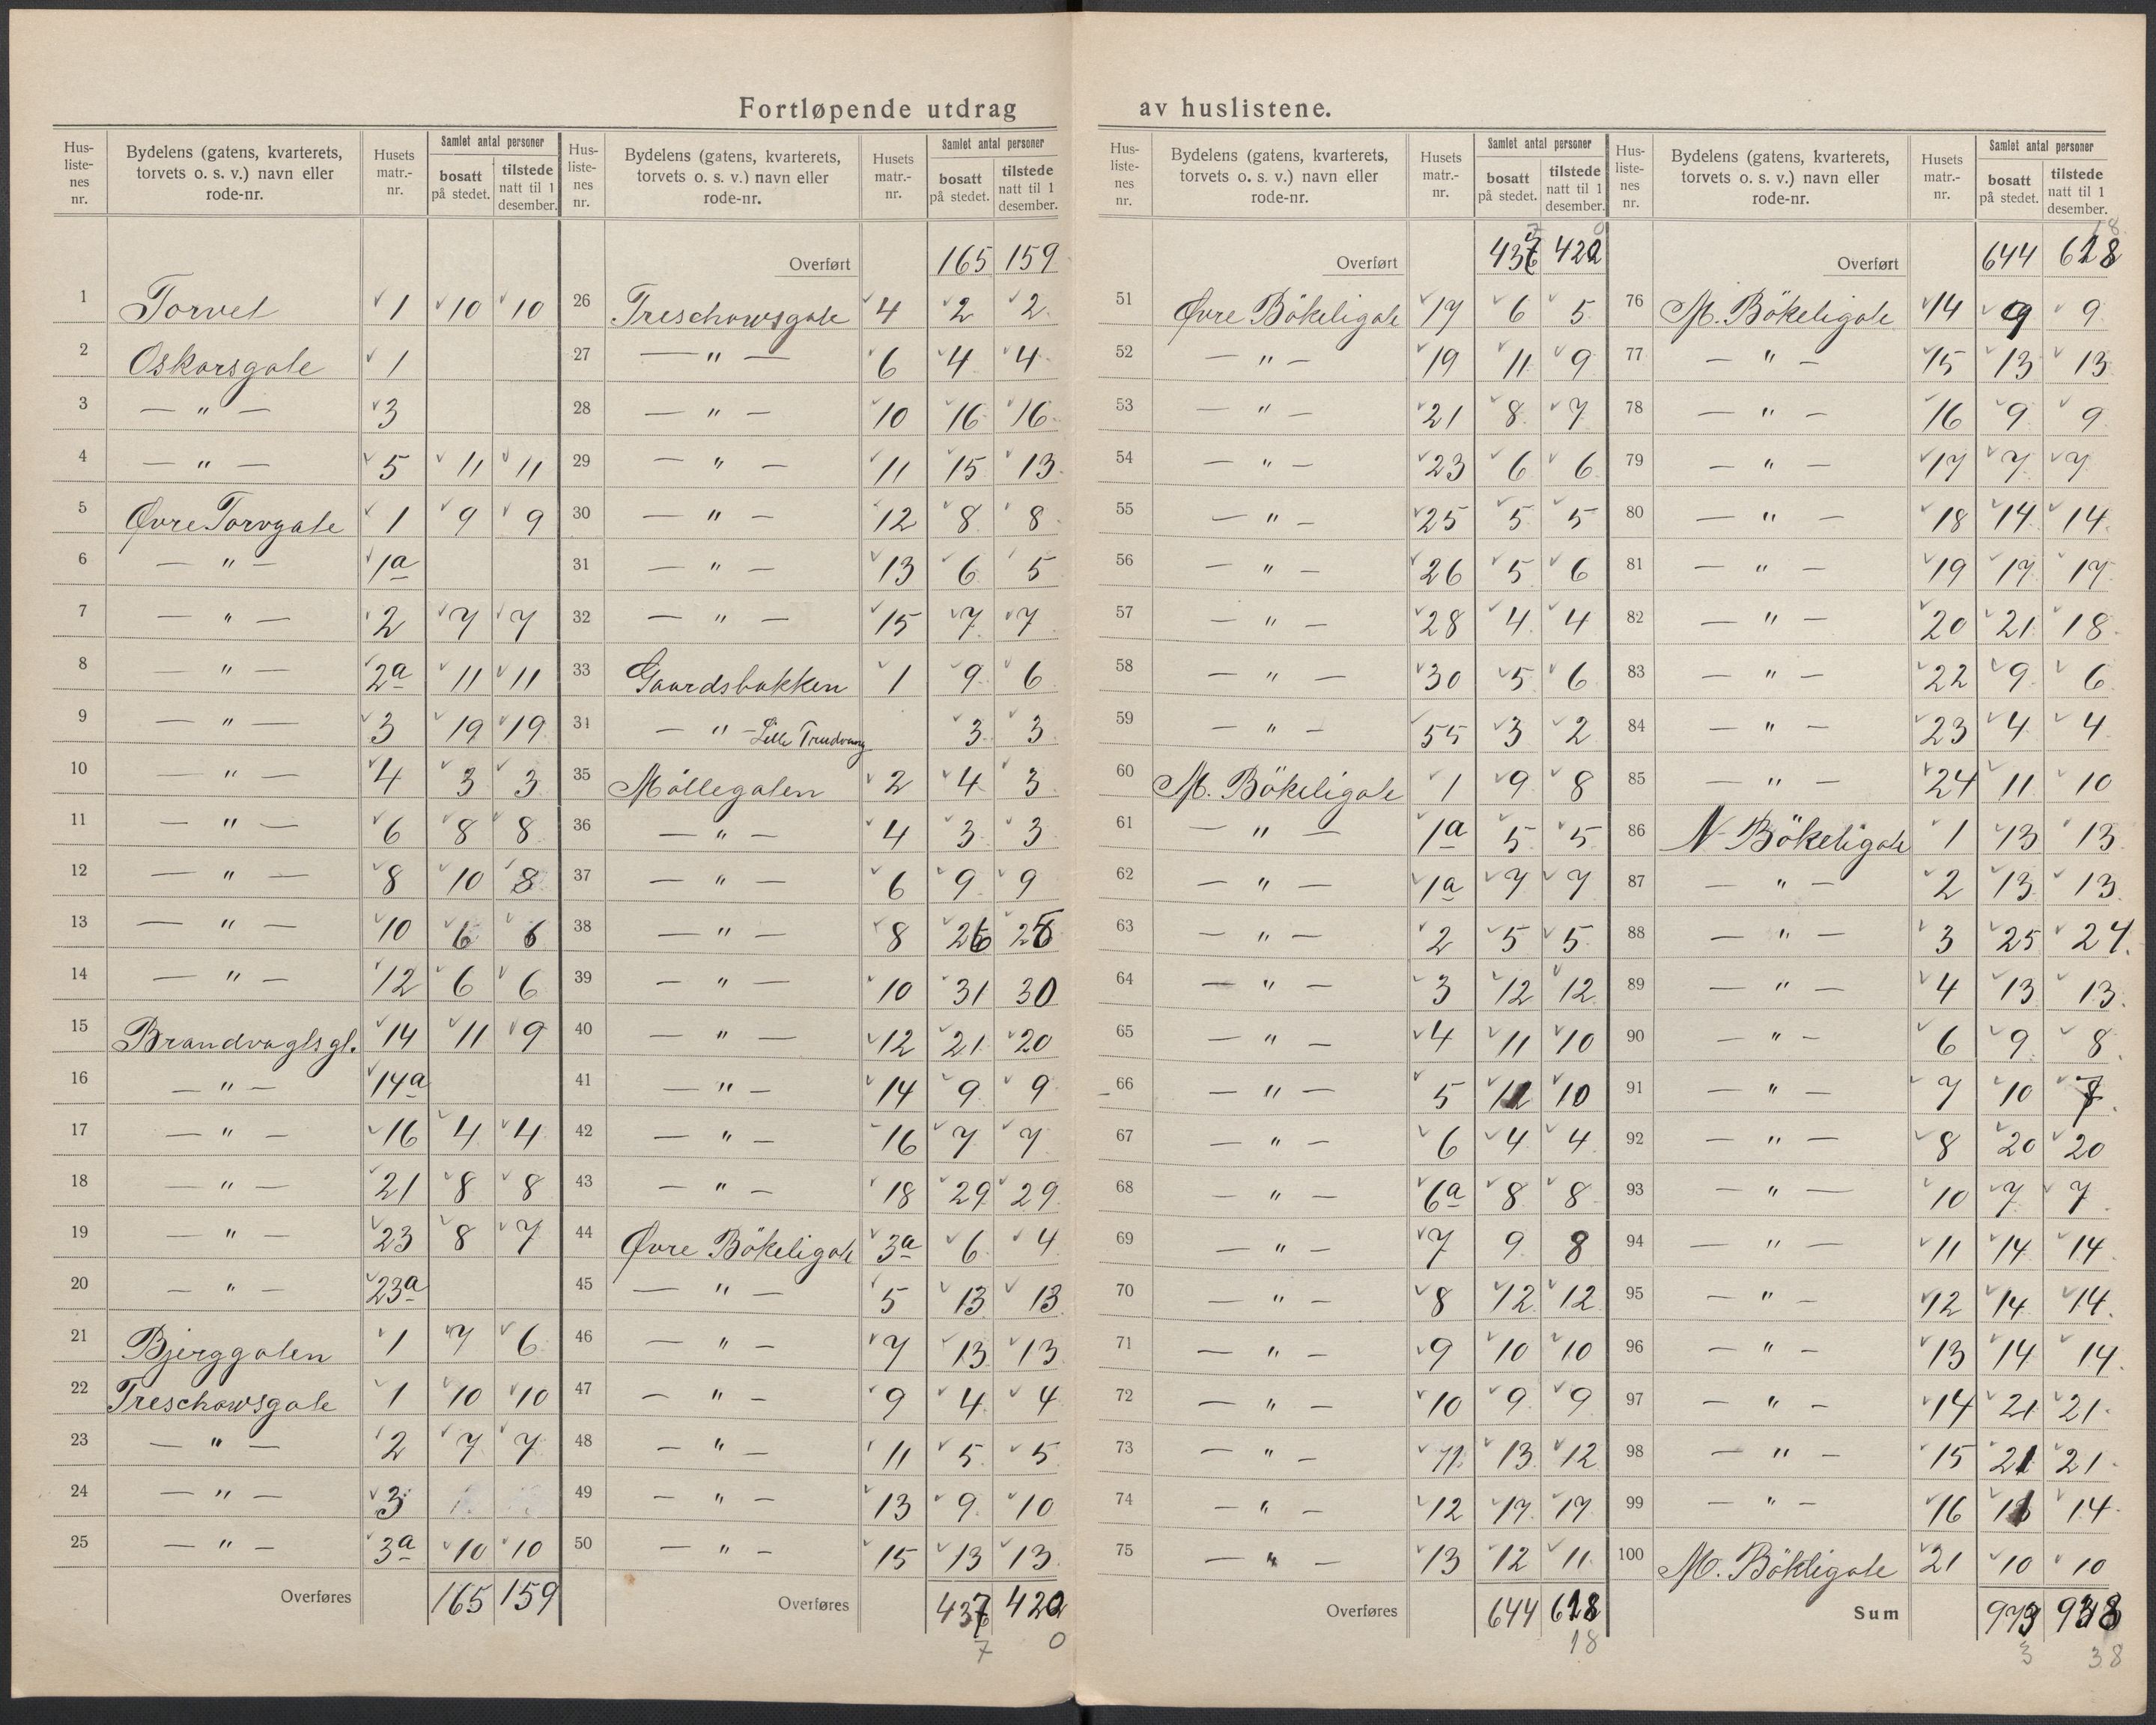 Fortløpende utdrag av huslistene.
Hus-liste-nes nr. | Bydelens (gatens, kvarterets, torvets o. s. v.) navn eller rode-nr. | Husets matr.-nr. | Samlet antal personer | bosatt på stedet. | tilstede natt til 1 desember.
1 Torvet 1 10 10
2 Oskarsgate 1
3 — " — 3
4 — " — 5 11 11
5 Øvre Torvgate 1 9 9
6 — " — 1a
7 — " — 2 7 7
8 — " — 2a 11 11
9 — " — 3 19 19
10 — " — 4 3 3
11 — " — 6 8 8
12 — " — 8 10 8
13 — " — 10 6 6
14 — " — 12 6 6
15 Brandvagtsgt. 14 11 9
16 — " — 14a
17 — " — 16 4 4
18 — " — 21 8 8
19 — " — 23 8 7
20 — " — 23a
21 Bjerggaten 1 7 6
22 Treschowsgate 1 10 10
23 — " — 2 7 7
24 — " — 3
25 — " — 3a 10 10
Overføres 165 159
Hus-liste-nes nr. | Bydelens (gatens, kvarterets, torvets o. s. v.) navn eller rode-nr. | Husets matr.-nr. | Samlet antal personer | bosatt på stedet. | tilstede natt til 1 desember.
Overført 165 159
26 Treschowsgate 4 2 2
27 — " — 6 4 4
28 — " — 10 16 16
29 — " — 11 15 13
30 — " — 12 8 8
31 — " — 13 6 5
32 — " — 15 7 7
33 Gaardsbakken 1 9 6
34 — " — Lille Trudvang 3 3
35 Møllegaten 2 4 3
36 — " — 4 3 3
37 — " — 6 9 9
38 — " — 8 26
39 — " — 10 31 30
40 — " — 12 21 20
41 — " — 14 9 9
42 — " — 16 7 7
43 — " — 18 29 29
44 Øvre Bökeligate 3a 6 4
45 — " — 5 13 13
46 — " — 7 13 13
47 — " — 9 4 4
48 — " — 11 5 5
49 — " — 13 9 10
50 — " — 15 13 13
Overføres 437 420
7 0
Hus-liste-nes nr. | Bydelens (gatens, kvarterets, torvets o. s. v.) navn eller rode-nr. | Husets matr.-nr. | Samlet antal personer | bosatt på stedet. | tilstede natt til 1 desember.
7 0
Overført 437 420
51 Øvre Bökeligate 17 6 5
52 — " — 19 11 9
53 — " — 21 8 7
54 — " — 23 6 6
55 — " — 25 5 5
56 — " — 26 5 6
57 — " — 28 4 4
58 — " — 30 5 6
59 — " — 55 3 2
60 M. Bökeligate 1 9 8
61 — " — 1a 5 5
62 — " — 1a 7 7
63 — " — 2 5 5
64 — " — 3 12 12
65 — " — 4 11 10
66 — " — 5 10
67 — " — 6 4 4
68 — " — 6a 8 8
69 — " — 7 9 8
70 — " — 8 12 12
71 — " — 9 10 10
72 — " — 10 9 9
73 — " — 11 13 12
74 — " — 12 17 17
75 — " — 13 12 11
Overføres 644 618
18
Hus-liste-nes nr. | Bydelens (gatens, kvarterets, torvets o. s. v.) navn eller rode-nr. | Husets matr.-nr. | Samlet antal personer | bosatt på stedet. | tilstede natt til 1 desember.
18
Overført 644 618
76 M. Bökeligate 14 9 9
77 — " — 15 13 13
78 — " — 16 9 9
79 — " — 17 7 7
80 — " — 18 14 14
81 — " — 19 17 17
82 — " — 20 21 18
83 — " — 22 9 6
84 — " — 23 4 4
85 — " — 24 11 10
86 N. Bökeligate 1 13 13
87 — " — 2 13 13
88 — " — 3 25 24
89 — " — 4 13 13
90 — " — 6 9 8
91 — " 7 10 7
92 — " — 8 20 20
93 — " — 10 7 7
94 — " — 11 14 14
95 — " — 12 14 14
96 — " — 13 14 14
97 — " — 14 21 21
98 — " — 15 21 21
99 — " — 16 14
100 M. Bökeligate 21 10 10
Sum 973 938
3 38